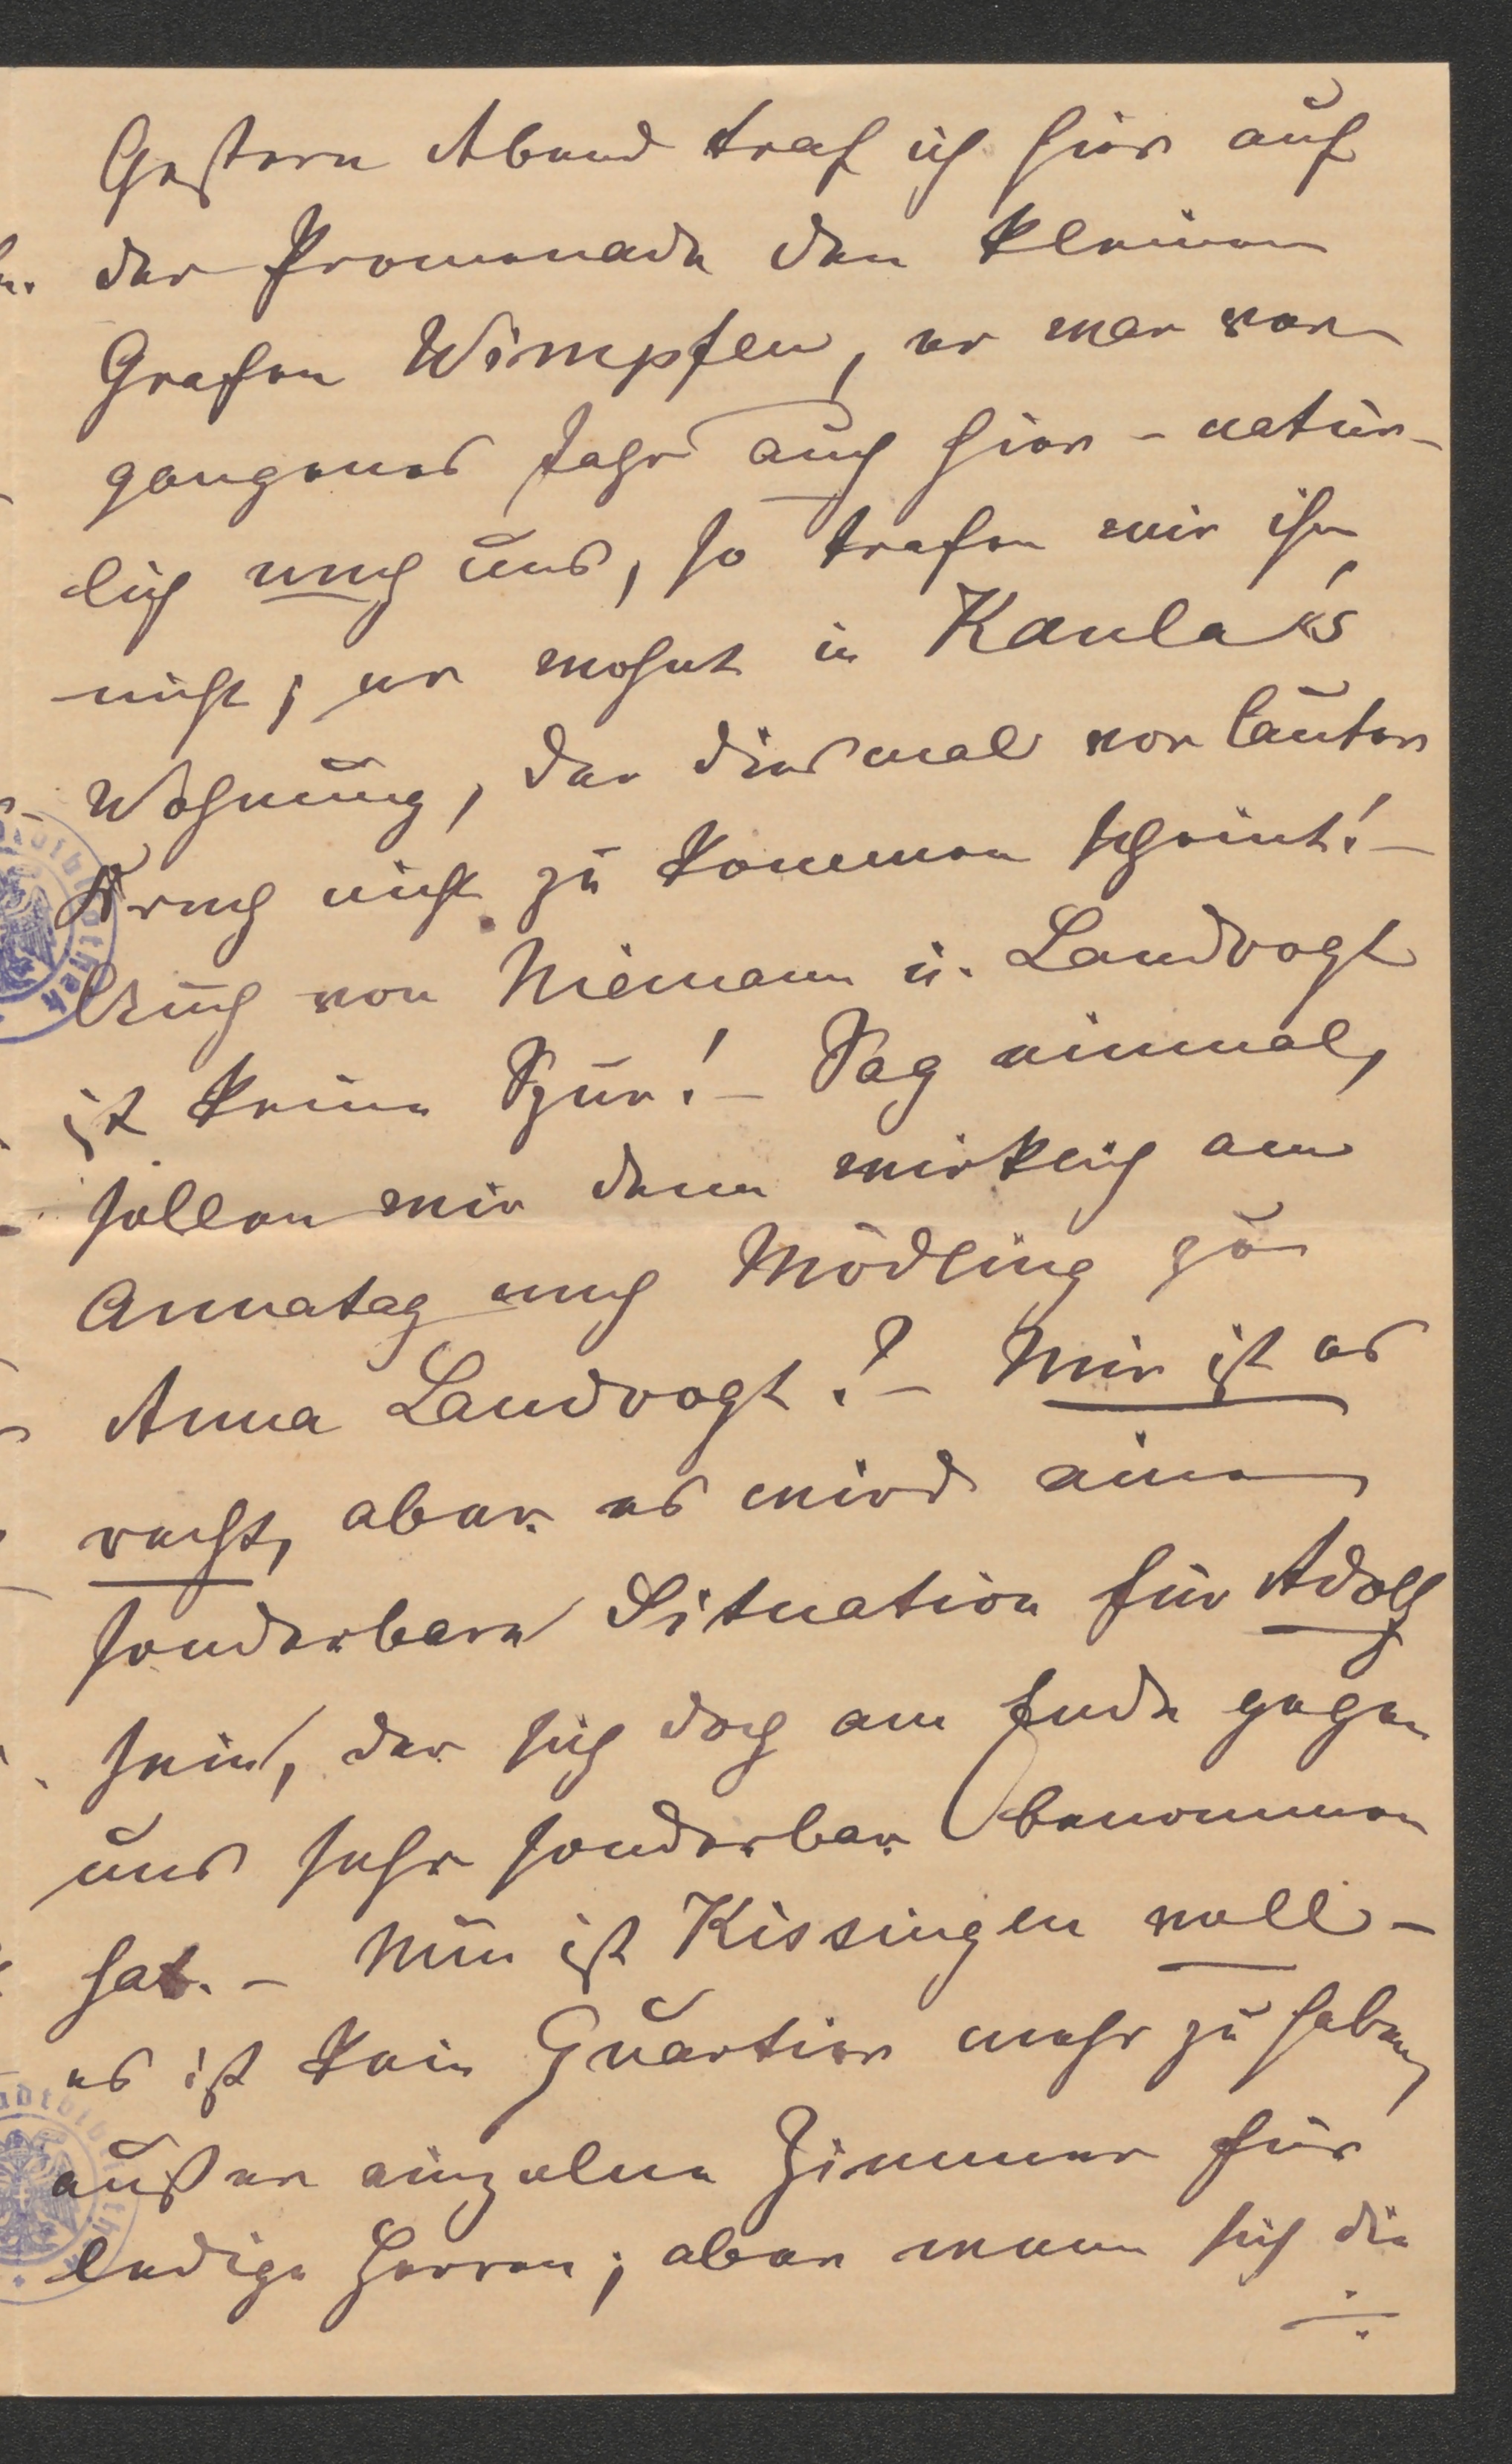 Gestern Abend traf ich hier auf
der Promenade den kleinen
Grafen Wimpfen, er war ver-
gangenes Jahr auch hier – natür-
lich nach uns, so trafen wir ihn
nicht; er wohnt in Kaula's
Wohnung, der diesmal vor lauter
nicht zu kommen scheint! –
Auch von Niemann u. Landvogt
ist keine Spur! – Sag einmal,
sollen wir denn wirklich am
Annatag nach Mödling zu
Anna Landvogt? – Mir ist es
recht, aber es wird eine
sonderbare Situation für Adolf
sein, der sich doch am Ende gegen
uns sehr sonderbar benommen
hat. – Nun ist Kissingen voll –
es ist kein Quartier mehr zu haben,
außer einzelne Zimmer für
ledige Herren; aber wenn sich die